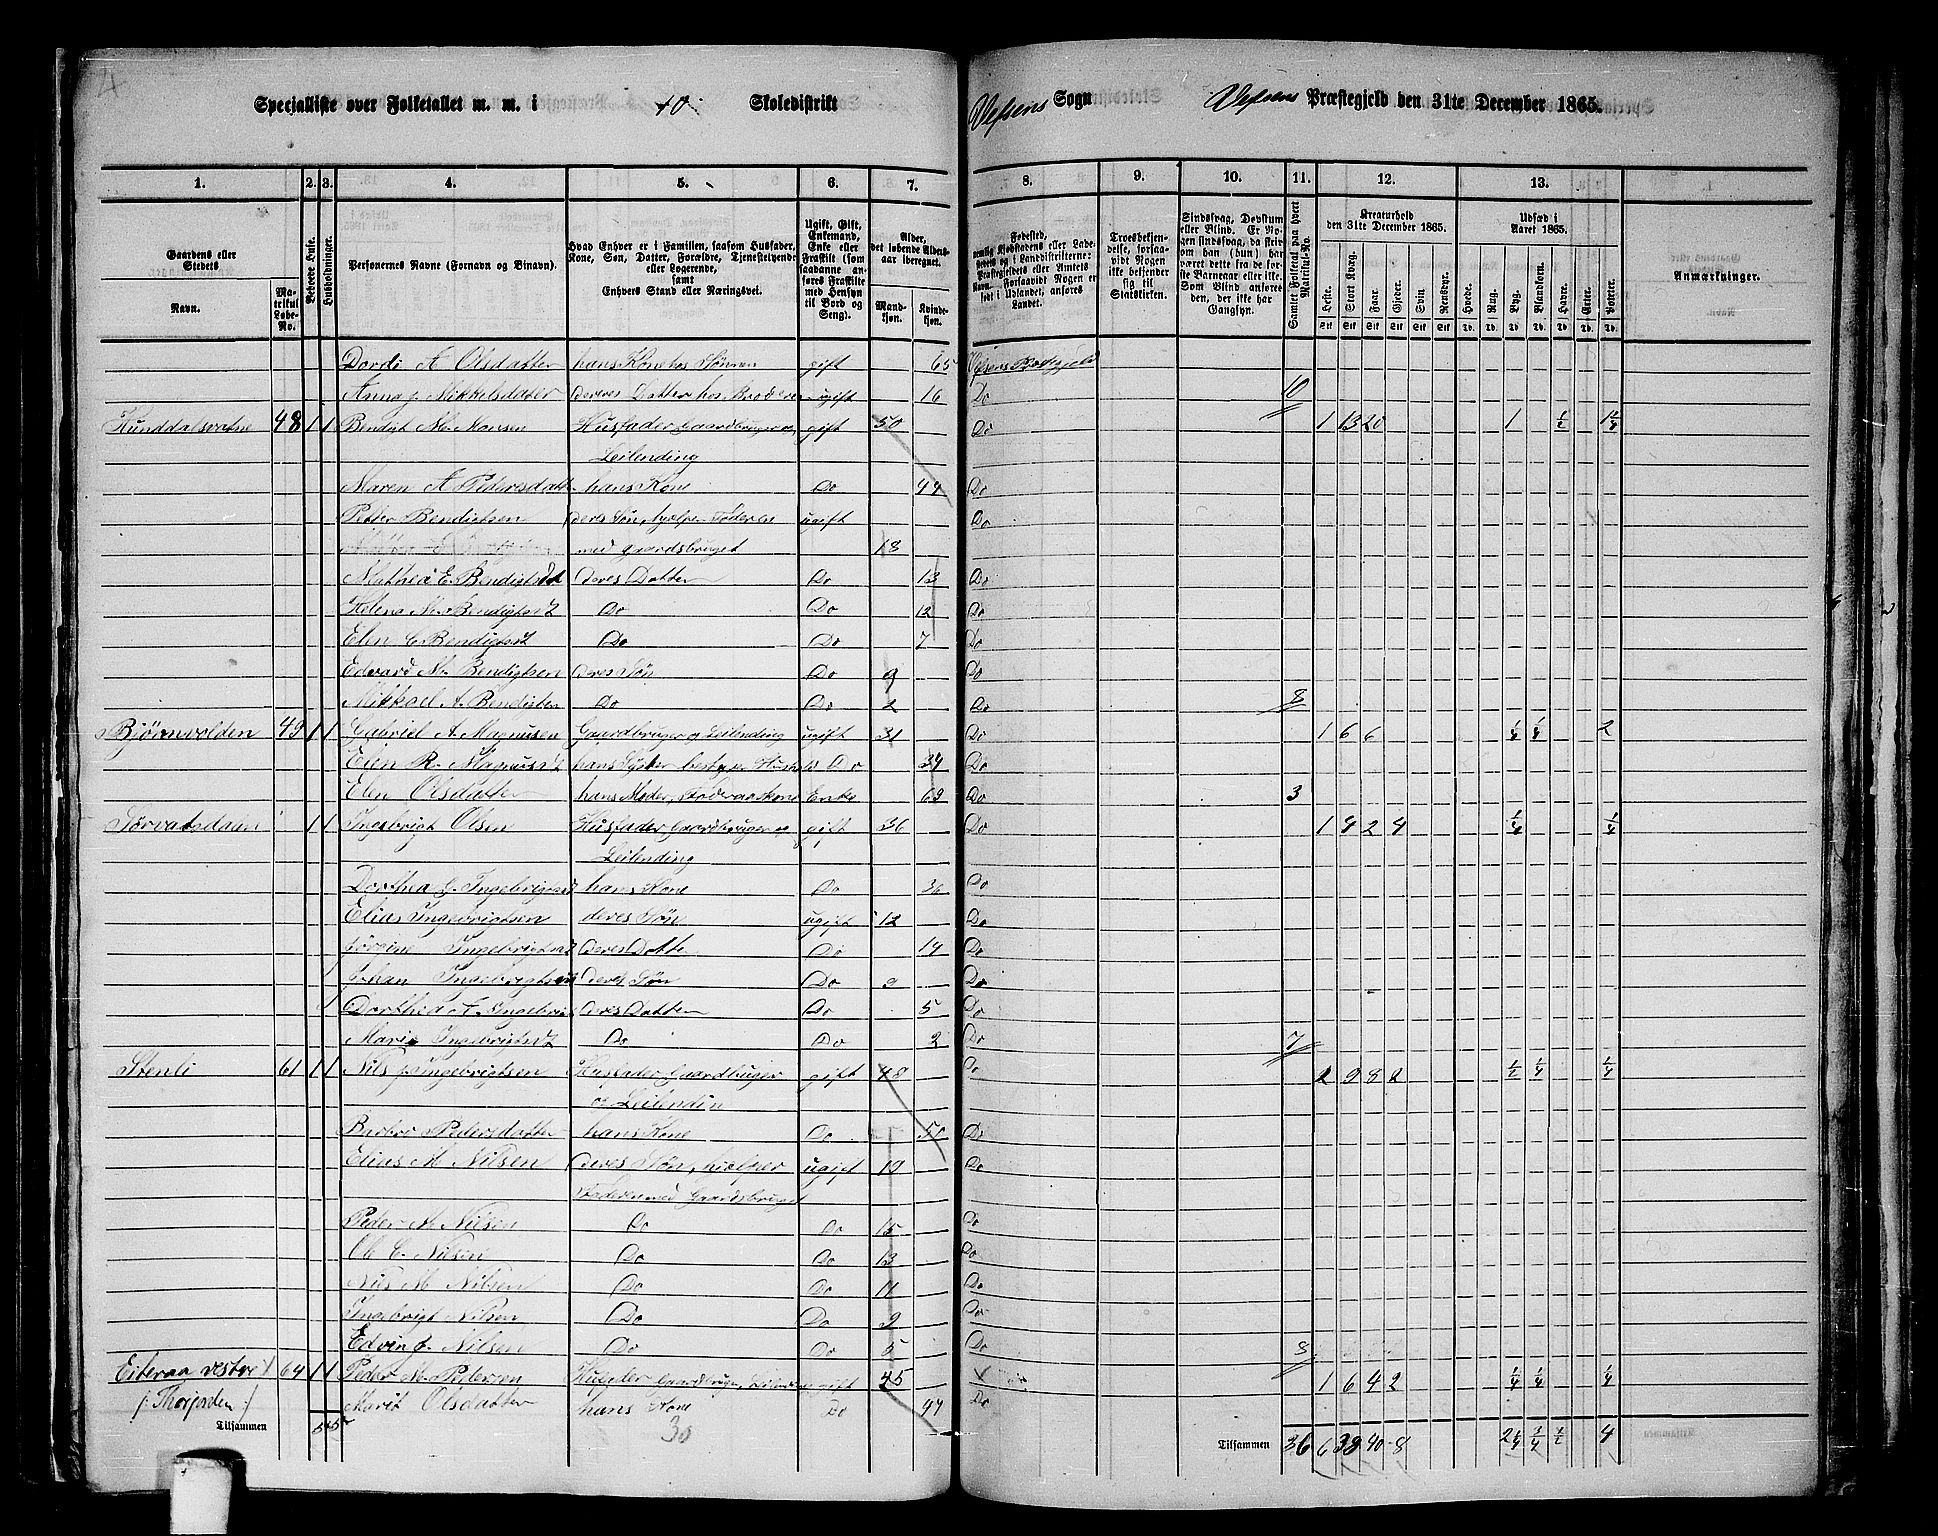 4
Specialliste over Folketallet m. m. i 10. Skoledistrikt Vefsens Sogn Vefsens Præstegjeld den 31te December 1865.
1. 2. 3. 4. 5. 6. 7. 8. 9. 10. 11. 12. 13.
Gaardens eller Stedets Navn.
Matrikul Løbe-No.
Beboede Huse.
Husholdninger.
Personernes Navne (Fornavn og Binavn).
Hvad Enhver er i Familien, saasom Husfader, Kone, Søn, Datter, Forældre, Tjenestetyende eller Logerende, samt Enhvers Stand eller Næringsvei.
Ugift, Gift, Enkemand, Enke eller Fraskilt (som saadanne anføres Fraskilte med Hensyn til Bord og Seng).
Alder, det løbende Aldersaar iberegnet.
Mandkjøn. Kvindekjøn.
Troesbekjendelse, forsaavidt Nogen ikke bekjender sig til Statskirken.
Samlet Folketal paa hvert Matrikul-No.
Kreaturhold den 31te December 1865.
Udsæd i Aaret 1865.
Anmærkninger.
Heste. Stort Kvæg. Faar. Gjeder. Svin. Rensdyr. Hvede. Rug. Byg. Blandkorn. Havre. Erter. Poteter.
Dordi A Olsdatter hans Kone hos Sønnen gift 65 Vefsens Præstegjeld
Anna J. Mikkelsdater deres Datter hos Broderen ugift 16 Do 10
Kunddalsvatne 48 1 1 Bendigt M. Monsen Husfader Gaardbruger og gift 50 Do 1 13 20 1 1/2 1 1/4
Leilending
Maren A Pedersdatt hans Kone Do 44 Do
Petter Bendigtsen deres Søn, hjelper Faderen ugift Do
med gaardsbruget 18
Mathea E. Bendigtsdt deres Datter Do 13 Do
Helena M. Bendigtsdt Do Do 12 Do
Elen C. Bendigtsdt Do Do 7 Do
Edvard M. Bendigtsen deres Søn Do 9 Do
Mikkael A. Bendigtsen Do Do 2 Do 8
Bjørnvolden 49 1 1 Gabriel A. Magnusen Gaardbruger og Leilending ugift 31 Do 1 6 6 1/4 1/4 2
Elen R. Magnusdt hans Syster bestyrer Hushold Do 34 Do
Elen Olsdatter hans Moder, Føderaadskone Enke 69 Do 3
1 1 Ingebrigt Olsen Husfader Gaardbruger og gift 36 Do 1 4 2 4 1/4 1/4
Leilending
Dorthea J. Ingebrigtsdt hans Kone Do 36 Do
Elias Ingebrigtsen deres Søn ugift 12 Do
Ingebrigtsdt deres Datter Do 14 Do
Johan Ingebrigtsen deres Søn Do 9 Do
Dorthea A. Ingebrigt deres Datter Do 5 Do
Marie Ingebrigtsdt Do Do 2 Do 7
Stenli 61 1 1 Nils J. Ingebrigtsen Husfader Gaardbruger gift 48 Do 2 9 8 2 1/2 1/4 1/4
og Leilendin
Barbro Pedersdatter hans Kone Do 50 Do
Elias M. Nilsen deres Søn, hjelper ugift 19 Do
Faderen med Gaardsbruget
Peder M. Nilsen Do Do 15 Do
Ole C. Nilsen Do Do 13 Do
Nils M. Nilsen Do Do 11 Do
Ingebrigt Nilsen Do Do 9 Do
Edvin J. Nilsen Do Do 5 Do 8
Eiteraa vestre 64 1 1 Peder M. Pedersen Husfader Gaardbruger, Leilending gift 45 1 6 4 2 1/4 1/4 1/4
Marit Olsdatter hans Kone Do 47 Do
Tilsammen 5 5 30 Tilsammen 36 6 38 40 8 2 1/4 3/4 1/2 4